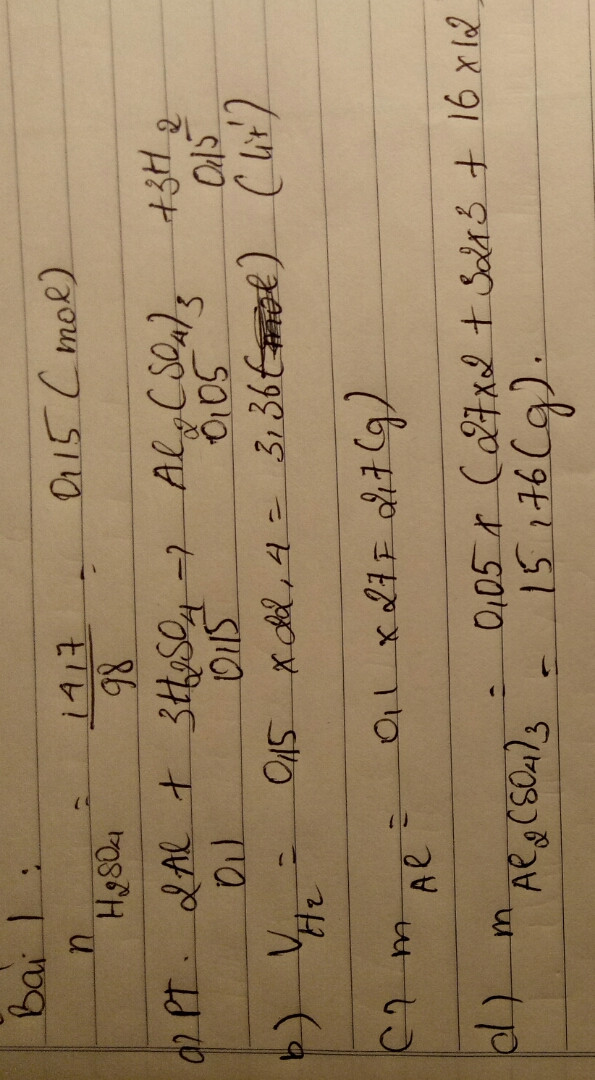 Bài 1 :
n H₂SO₄ = 14,7/98 = 0,15 (mol)
a) PT. 2Al + 3H₂SO₄ → Al₂(SO₄)₃ + 3H₂
0,1 0,15 0,05 0,15
b) V H₂ = 0,15 x 22,4 = 3,36 (lít)
c) m Al = 0,1 x 27 = 2,7 (g)
d) m Al₂(SO₄)₃ = 0,05 x (27x2 + 32x3 + 16x12
= 15,76 (g).